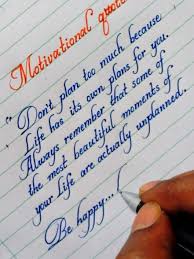 Motivational quote
"Don't plan too much because
Life has its own plans for you.
Always remember that some of
the most beautiful moments of
your life are actually unplanned.
Be happy...!